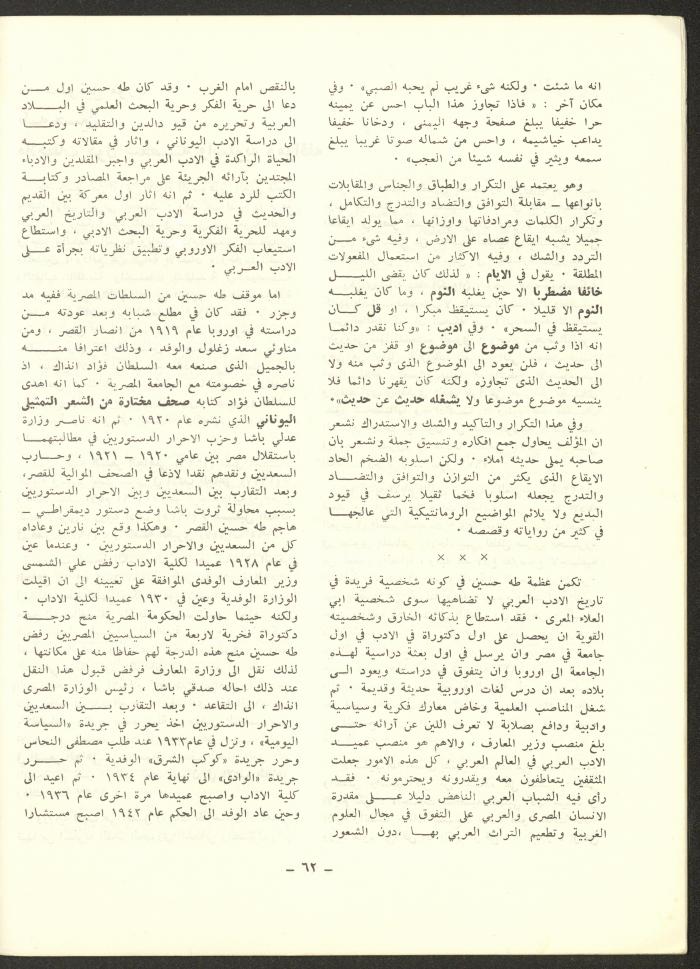 انه ما شئت ٠ ولكنه شىء غريب لم يحبه الصبي» ٠ وفي
مكان آخر : « فاذا تجاوز هذا الباب احس عن يمينه
حرا خفيفا يبلغ صفحة وجهه اليمنى ، ودخانا خفيفا
يداعب خياشيمه ، واحس من شماله صوتا غريبا يبلغ
سمعه ويثير في نفسه شيئا من العجب» ٠
وهو يعتمد على التكرار والطباق والجناس والمقابلات
بانواعها ــ مقابلة التوافق والتضاد والتدرج والتكامل ،
وتكرار الكلمات ومرادفاتها واوزانها ، مما يولد ايقاعا
جميلا يشبه ايقاع عصاه على الارض ، وفيه شىء مــن
التردد والشك ، وفيه الاكثار من استعمال المفعولات
المطلقة ٠ يقول في الايام : « لذلك كان يقضى الليــل
خائفا مضطربا الا حين يغلبه النوم ، وما كان يغلبــه
النوم الا قليلا ٠ كان يستيقظ مبكرا ، او قل كــان
يستيقظ في السحر» ٠ وفي اديب : «وكنا نقدر دائمـا
انه اذا وثب من موضوع الى موضوع او قفز من حديث
الى حديث ، فلن يعود الى الموضوع الذى وثب منه ولا
الى الحديث الذى تجاوزه ولكنه كان يقهرنا دائما فلا
ينسيه موضوع موضوعا ولا يشغله حديث عن حديث»٠
وفي هذا التكرار والتاكيد والشك والاستدراك نشعر
ان المؤلف يحاول جمع افكاره وتنسيق جملة ونشعر بان
صاحبه يملى حديثه املاء ٠ ولكن اسلوبه الضخم الحاد
الايقاع الذى يكثر من التوازن والتوافق والتضــاد
والتدرج يجعله اسلوبا فخما ثقيلا يرسف في قيود
البديع ولا يلائم المواضيع الرومانتيكية التي عالجهـا
في كثير من رواياته وقصصه ٠
× × ×
تكمن عظمة طه حسين في كونه شخصية فريدة في
تاريخ الادب العربي لا تضاهيها سوى شخصية ابي
العلاء المعرى ٠ فقد استطاع بذكائه الخارق وشخصيته
القوية ان يحصل على اول دكتوراة في الادب في اول
جامعة في مصر وان يرسل في اول بعثة دراسية لهــذه
الجامعة الى اوروبا وان يتفوق في دراسته ويعود الـى
بلاده بعد ان درس لغات اوروبية حديثة وقديمة ٠ ثم
شغل المناصب العلمية وخاض معارك فكرية وسياسية
وادبية ودافع بصلابة لا تعرف اللين عن آرائه حتــى
بلغ منصب وزير المعارف ، والاهم هو منصب عميــد
الادب العربي في العالم العربي ، كل هذه الامور جعلت
المثقفين يتعاطفون معه ويقدرونه ويحترمونه ٠ فقــد
رأى فيه الشباب العربي الناهض دليلا عــلى مقدرة
الانسان المصرى والعربي على التفوق في مجال العلوم
الغربية وتطعيم التراث العربي بهـا ،دون الشعور
بالنقص امام الغرب ٠ وقد كان طه حسين اول مــن
دعا الى حرية الفكر وحرية البحث العلمي في البــلاد
العربية وتحريره من قيو دالدين والتقليد ، ودعــا
الى دراسة الادب اليوناني ، واثار في مقالاته وكتبــه
الحياة الراكدة في الادب العربي واجبر المقلدين والادباء
المجتدين بآرائه الجريئة على مراجعة المصادر وكتابــة
الكتب للرد عليه ٠ ثم انه اثار اول معركة بين القديم
والحديث في دراسة الادب العربي والتاريخ العربي
ومهد للحرية الفكرية وحرية البحث الادبي ، واستطاع
استيعاب الفكر الاوروبي وتطبيق نظرياته بجرأة عــلى
الادب العــربي ٠
اما موقف طه حسين من السلطات المصرية ففيه مد
وجزر ٠ فقد كان في مطلع شبابه وبعد عودته مــن
دراسته في اوروبا عام ١٩١٩ من انصار القصر ، ومن
مناوئي سعد زغلول والوفد ، وذلك اعترافا منــــه
بالجميل الذى صنعه معه السلطان فؤاد انذاك ، اذ
ناصره في خصومته مع الجامعة المصرية ٠ كما انه اهدى
للسلطان فؤاد كتابه صحف مختارة من الشعر التمثيلي
اليوناني الذي نشره عام ١٩٢٠ ٠ ثم انه ناصر وزارة
عدلي باشا وحزب الاحرار الدستوريين في مطالبتهمــا
باستقلال مصر بين عامي ١٩٢٠ ــ ١٩٢١ ، وحــارب
السعديين ونقدهم نقدا لاذعا في الصحف الموالية للقصر،
وبعد التقارب بين السعديين وبين الاحرار الدستوريين
بسبب محاولة ثروت باشا وضع دستور ديمقراطي ــ
هاجم طه حسين القصر ٠ وهكذا وقع بين نارين وعاداه
كل من السعديين والاحرار الدستوريين ٠ وعندما عين
في عام ١٩٢٨ عميدا لكلية الاداب رفض علي الشمسى
وزير المعارف الوفدى الموافقة على تعيينه الى ان اقيلت
الوزارة الوفدية وعين في ١٩٣٠ عميدا لكلية الاداب ٠
ولكنه حينما حاولت الحكومة المصرية منح درجــــة
دكتوراة فخرية لاربعة من السياسيين المصريين رفض
طه حسين منح هذه الدرجة لهم حفاظا منه على مكانتها ،
لذلك نقل الى وزارة المعارف فرفض قبول هذا النقل
عند ذلك احاله صدقي باشا ، رئيس الوزارة المصرى
انذاك ، الى التقاعد ٠ وبعد التقارب بـــين السعديين
والاحرار الدستوريين اخذ يحرر في جريدة «السياسة
اليومية» ، ونزل في عام١٩٣٣ عند طلب مصطفى النحاس
وحرر جريدة «كوكب الشرق» الوفدية ٠ ثم حـــرر
جريدة «الوادى» الى نهاية عام ١٩٣٤ ٠ ثم اعيد الى
كلية الاداب واصبح عميدها مرة اخرى عام ١٩٣٦ ٠
وحين عاد الوفد الى الحكم عام ١٩٤٢ اصبح مستشارا
ــ ٦٢ ــ